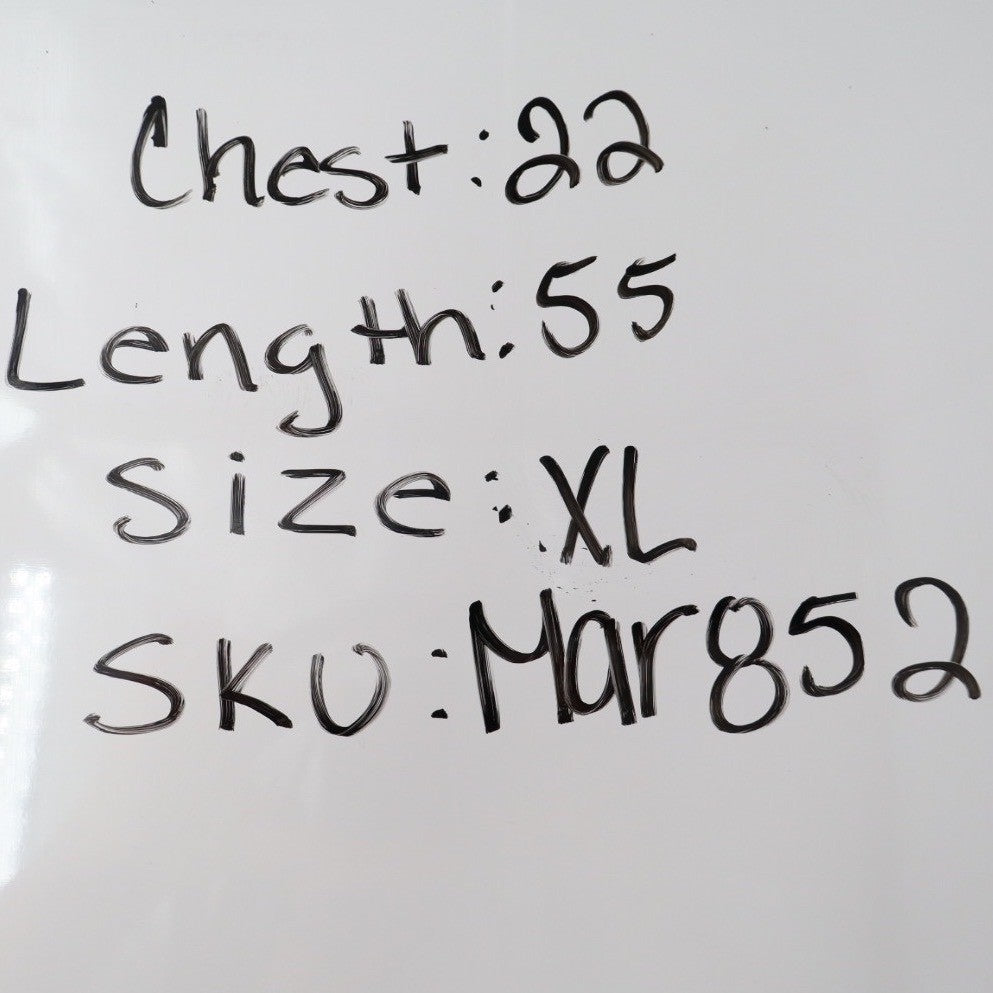 Chest:22
Length:55
Size:XL
SKU:Mar852